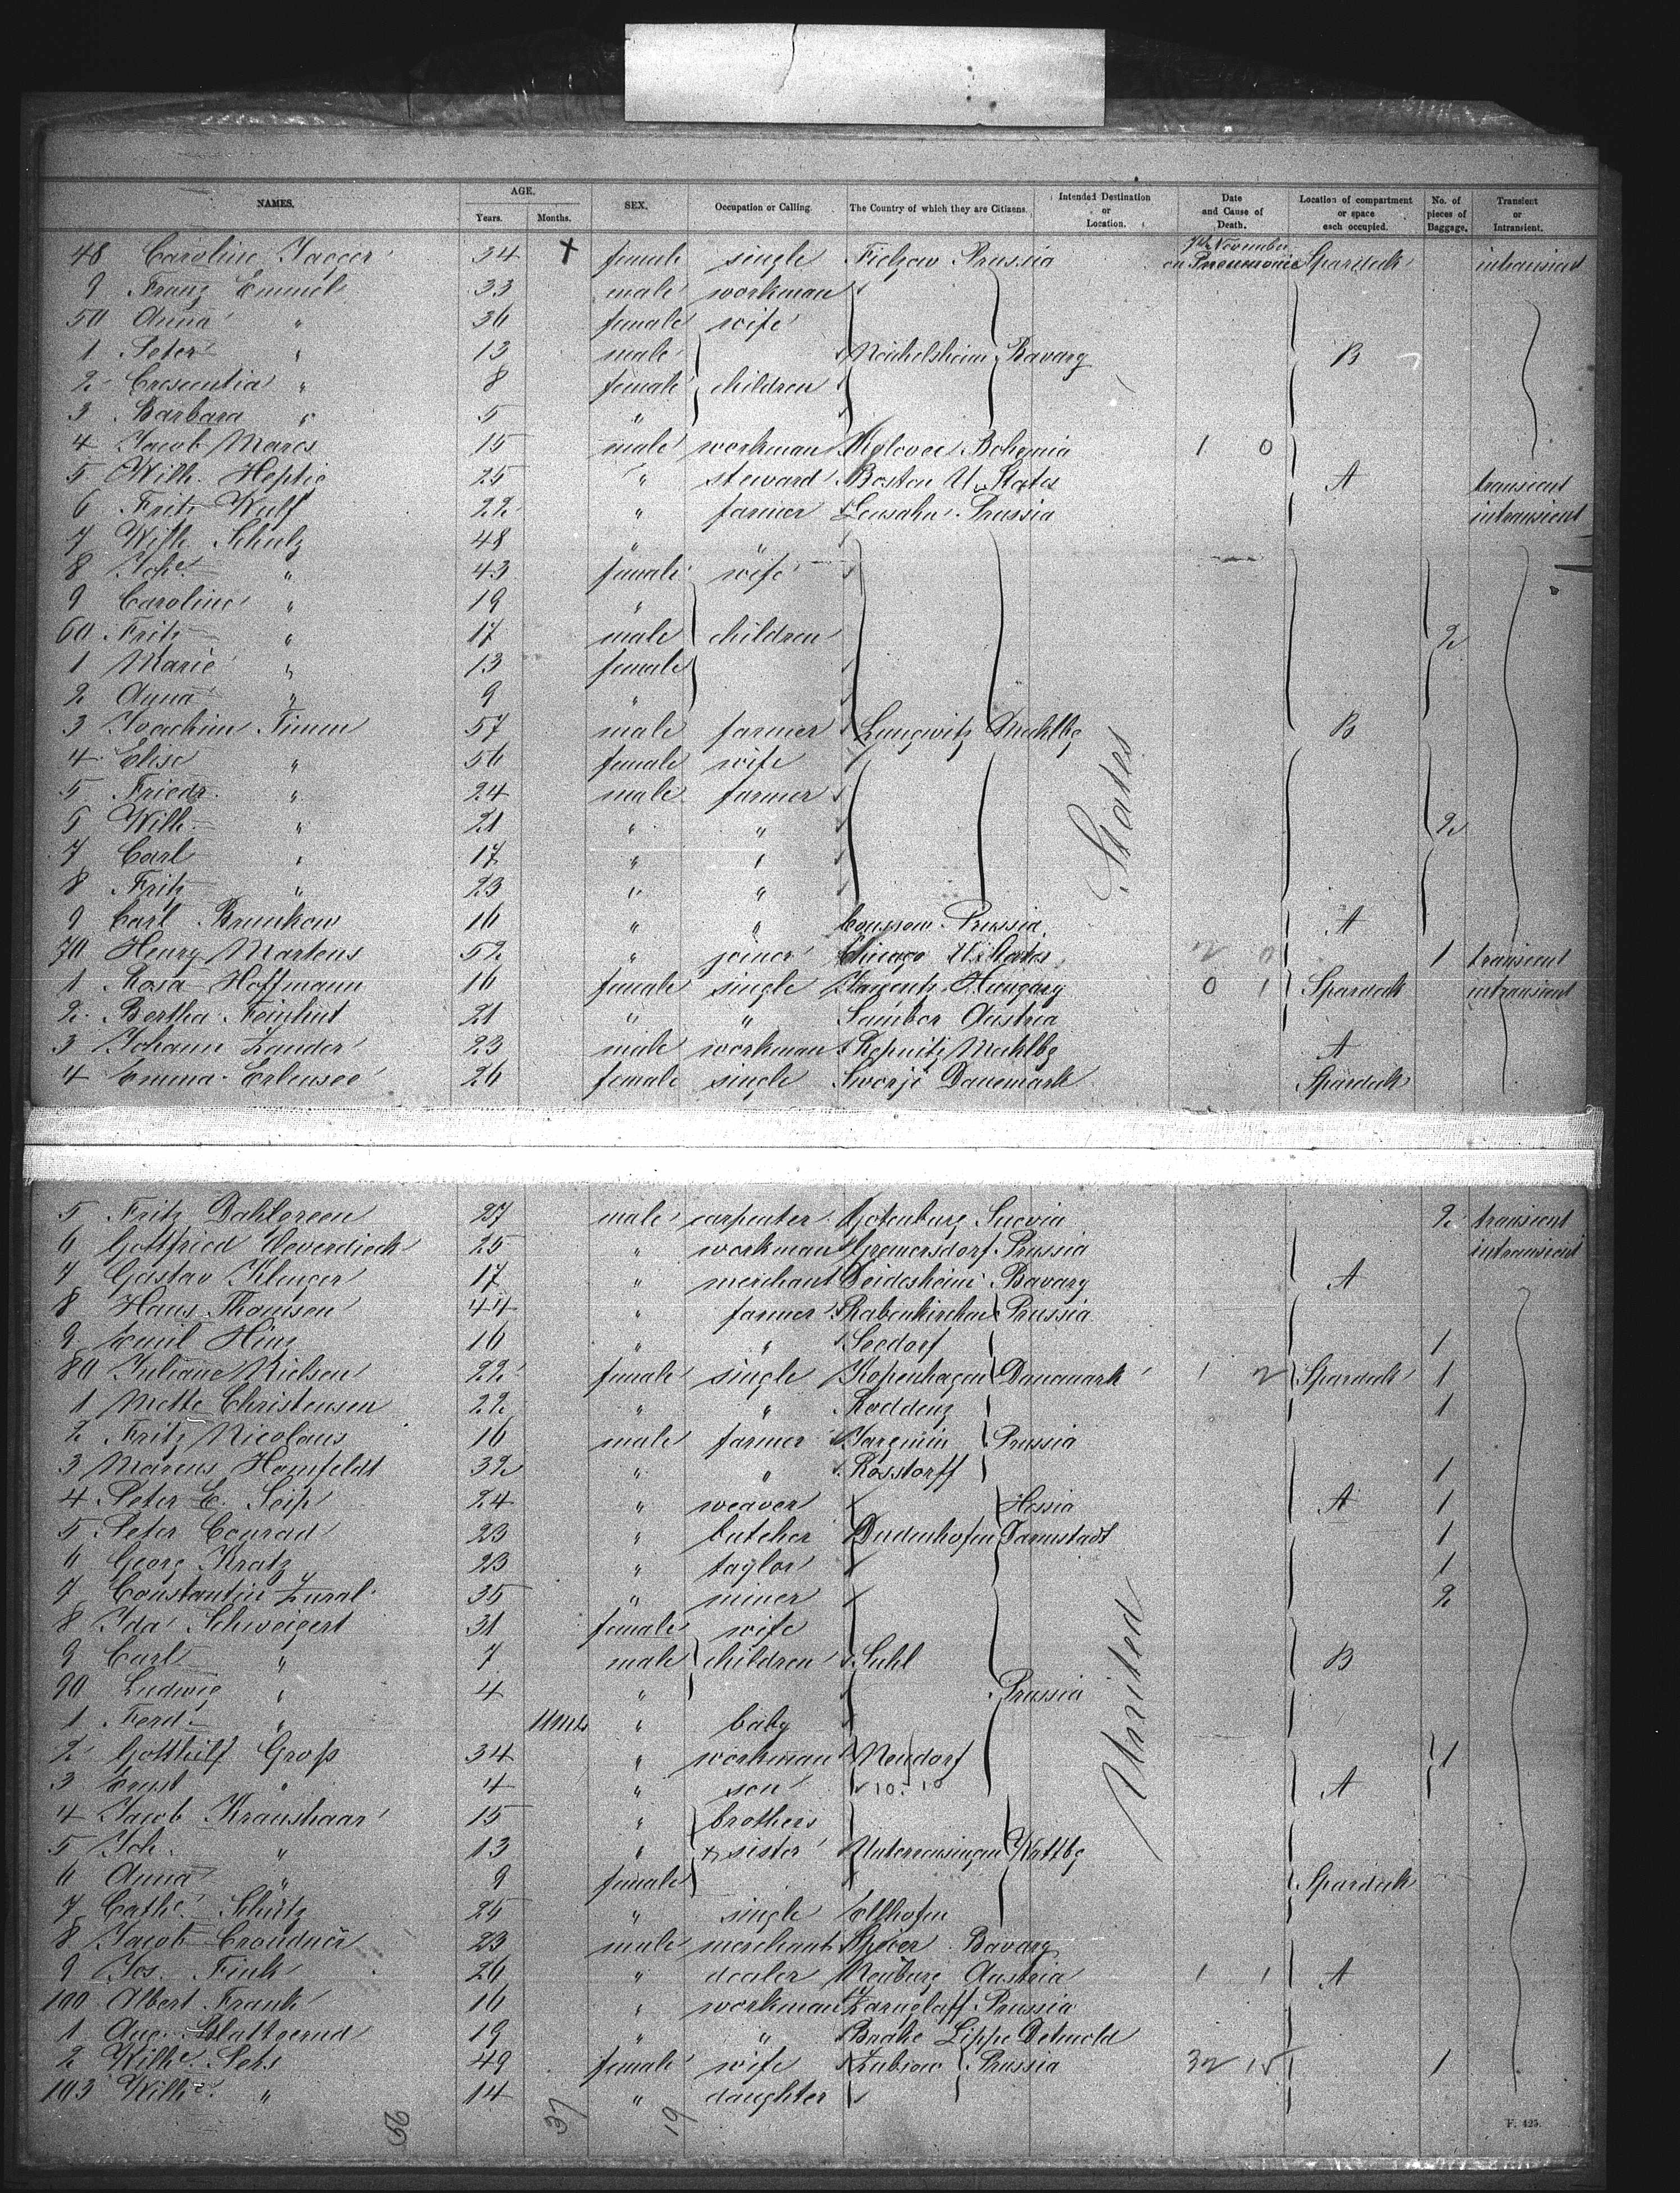 NAMES. AGE. Years. Months. SEX. Occupation or Calling. The Country of which they are Citizens. Intended Destination or Location. Date and Cause of Death. Location of compartment or space each occupied. No. of pieces of Baggage. Transient or Intransient.
48 Caroline Jaeger 34 + female single Prussia 7th November on Pneumonie Spardeck intransient
9 Franz Emmel 33 male workman
50 Anna " 36 female wife
1 Peter " 13 male Bavary B
2 Crescentia " 8 female children
3 Barbara " 5 "
4 Jacob Mares 15 male workman Bohemia 1 0
5 Wilh. 25 " steward Boston U. States A transient
6 Fritz Wulf 22 " farmer Lensahn Prussia intransient
7 Wilh. Schulz 48 " "
8 Johe " 43 female wife
9 Caroline " 19 "
60 Fritz " 17 male children 2
1 Marie " 13 female
2 Anna " 9 "
3 Joachim Timm 57 male farmer Lungwitz Mecklbg B
4 Elise " 56 female wife
5 Friedr. " 24 male farmer
6 Wilh. " 21 " " 2
7 Carl " 17 " "
8 Fritz " 23 " "
States
9 Carl Brunkow 16 " " Prussia A
70 Henry Martens 52 " joiner Chicago U. States 2 0 1 transient
1 Rosa Hoffmann 16 female single Hungary 0 1 Spardeck intransient
2 Bertha Feinhut 21 " " Sambor Austria
3 Johann Zander 23 male workman Mecklbg A
4 Emma Erlensee 26 female single Danemark Spardeck
5 Fritz Dahlgreen 27 male carpenter Gotenburg Suevia 2 transient
6 Gottfried Oeverdieck 25 " workman Gremersdorf Prussia intransient
7 Gustav Klenger 17 " merchant Deidesheim Bavary A
8 Hans Thomsen 44 " farmer Rabenkirchen Prussia
9 Emil Hinz 16 " " Seedorf 1
80 Juliane Nielsen 22 female single Kopenhagen Danemark 1 2 Spardeck 1
1 Mette Christensen 22 " " 1
2 Fritz Nicolaus 16 male farmer Jargenin Prussia
3 Marcus Hamfeldt 32 " " Rosstorff 1
4 Peter E. Seip 24 " weaver Hessia A 1
5 Peter Conrad 23 " butcher Dudenhofen Darmstadt 1
6 Georg Kratz 23 " taylor 1
7 Constantin Zural 35 " miner 2
8 Ida Schweigert 31 female wife
9 Carl " 7 male children Suhl B
90 Ludwig " 4 " Prussia
1 Ferd. " 11 mts " baby
United
2 Gotthilf Groß 34 " workman Neudorf 1
3 Ernst " 4 " son A
4 Jacob Kraushaar 15 " brothers
5 Joh. " 13 " & sister Unterensingen Wrttbg
6 Anna " 9 female Spardeck
7 Cathe. Schütz 25 " single Ellhofen
8 Jacob 23 male merchant Speier Bavary
9 Jos. Fink 26 " dealer Neuburg Austria 1 1 A
100 Albert Frank 16 " workman Zarnglaff Prussia
1 Aug. 19 " " Brake Lippe Detmold
2 Wilhe. Pets 49 female wife Prussia 32 15 1
103 Wilhe. " 14 " daughter
56 37 19
F. 425.